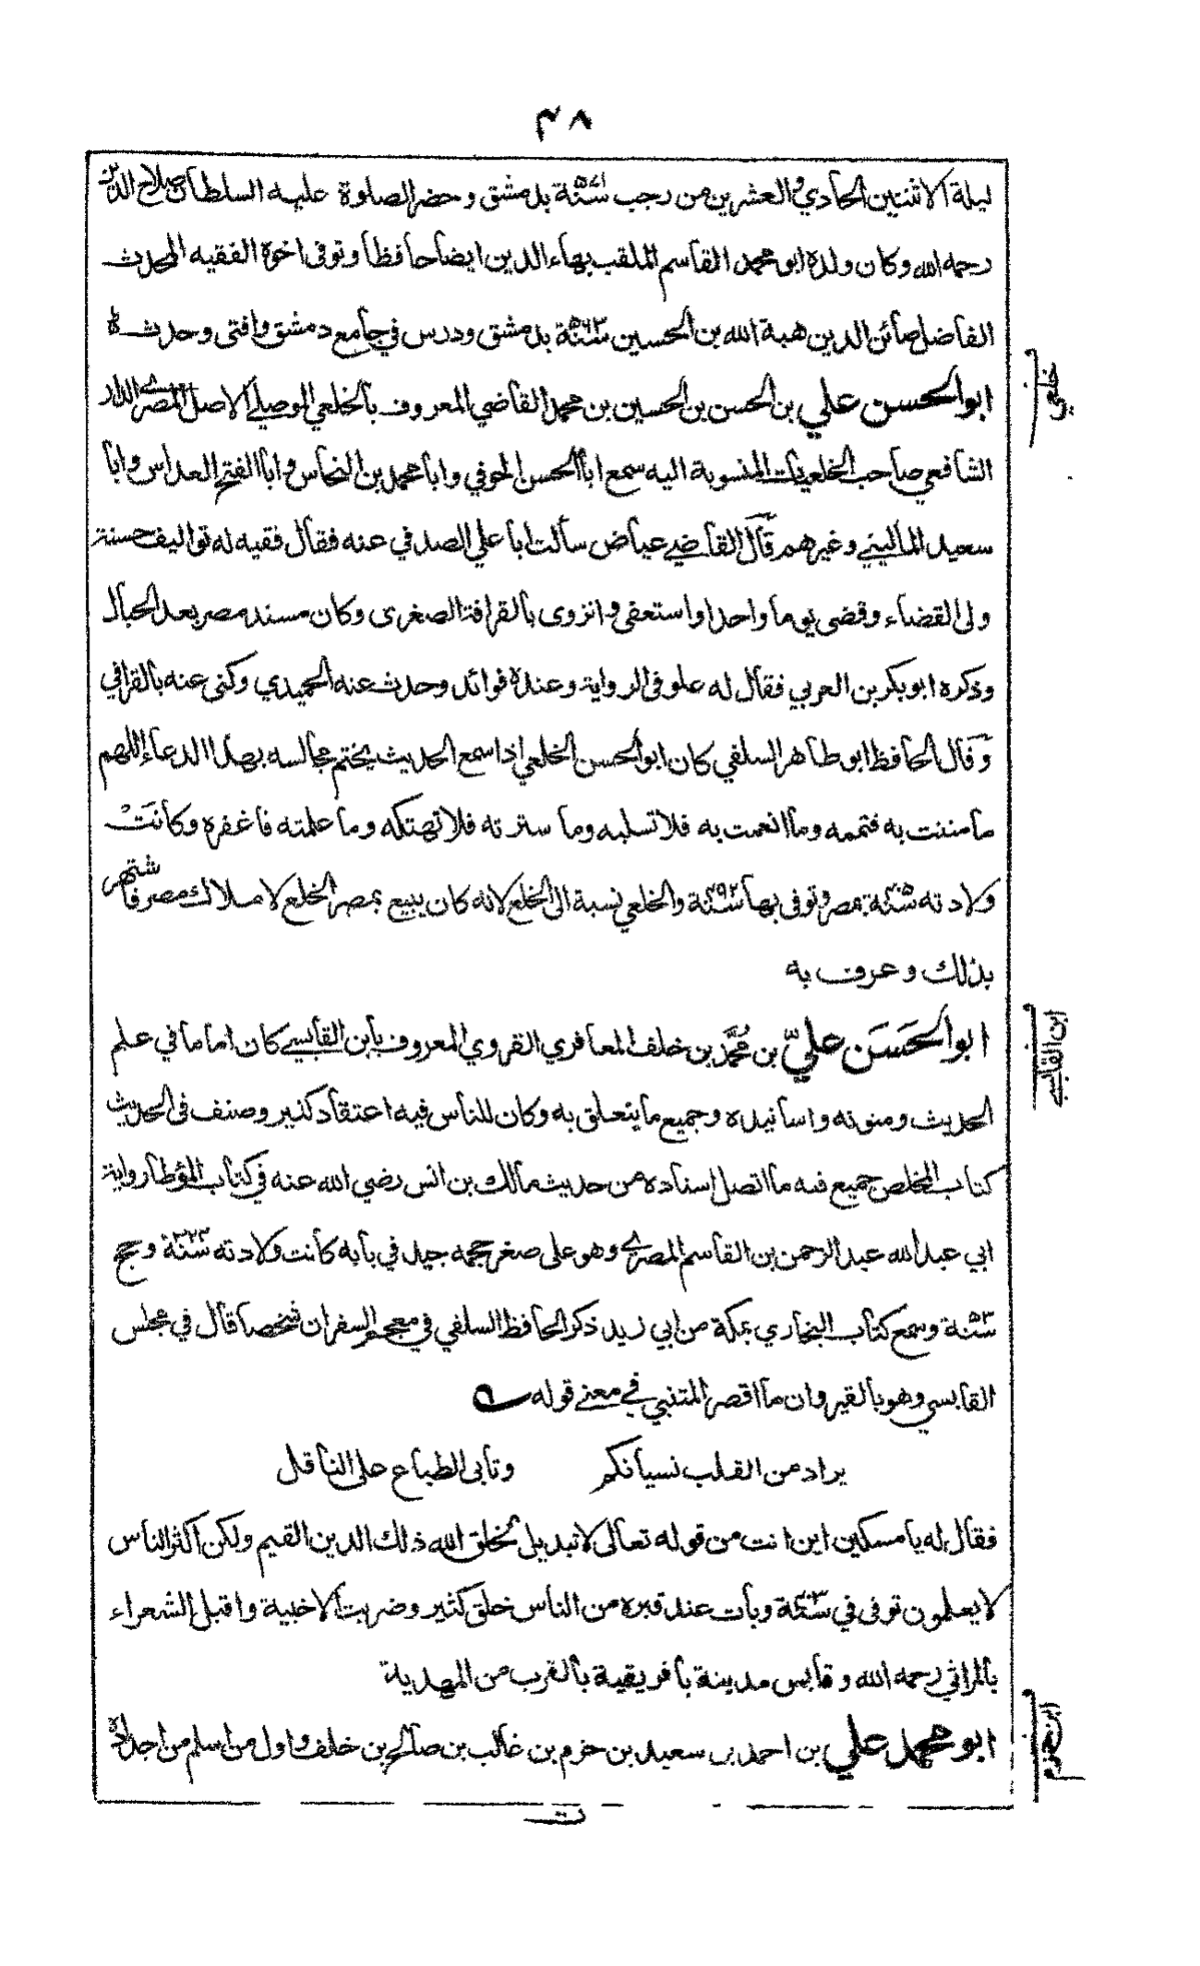 ٤٨
ليلة الاثنين الحادي والعشرين من رجب سنة ٥٧١ بدمشق وحضر الصلوة عليه السلطان صلاح الدين
رحمه الله وكان ولده ابو محمد القاسم الملقب بهاء الدين ايضا حافظا وتوفى اخوه الفقيه المحدث
الفاضل صائن الدين هبة الله بن الحسين سنة ٥٦٣ بدمشق ودرس في جامع دمشق وافتى وحدث
خلعي
ابو الحسن علي بن الحسن بن الحسين بن محمد القاضي المعروف بالخلعي الموصلي الاصل المصري الدار
الشافعي صاحب الخلعيات المنسوبة اليه سمع ابا الحسن الحوفي وابا محمد بن النحاس وابا الفتح العداس وابا
سعيد الماليني وغيرهم قال القاضي عياض سألت ابا علي الصدفي عنه فقال فقيه له تواليف حسنة
ولى القضاء وقضى يوما واحدا واستعفى وانزوى بالقرافة الصغرى وكان مسند مصر بعد الحبال
وذكره ابو بكر بن العربي فقال له علو فى الرواية وعنده فوائد وحدث عنه الحميدي وكنى عنه بالقرافي
وقال الحافظ ابو طاهر السلفي كان ابو الحسن الخلعي اذا سمع الحديث يختم مجالسه بهذا الدعاء اللهم
ما مننت به فتممه وما انعمت به فلا تسلبه وما سترته فلا تهتكه وما علمته فاغفره وكانت
ولادته سنة ٤٠٥ بمصر وتوفى بها سنة ٤٩٢ والخلعي نسبة الى الخلع لانه كان يبيع بمصر الخلع لاملاك مصر فاشتهر
بذلك وعرف به
ابن القابسي
ابو الحسن علي بن محمد بن خلف المعافري القروي المعروف بابن القابسي كان اماما في علم
الحديث ومتونه واسانيده وجميع ما يتعلق به وكان للناس فيه اعتقاد كثير وصنف فى الحديث
كتاب الملخص جميع فيه ما اتصل اسناده من حديث مالك بن انس رضي الله عنه في كتاب المؤطا رواية
ابي عبد الله عبد الرحمن بن القاسم المصري وهو على صغر حجمه جيد في بابه كانت ولادته سنة ٣٢٤ وحج
سنة ٣٥٣ وسمع كتاب البخاري بمكة من ابي زيد ذكر الحافظ السلفي في معجم السفر ان شخصا قال في مجلس
القابسي وهو بالقيروان ما اقصر المتنبي في معنى قوله
يراد من القلب نسيانكم وتابى الطباع على الناقل
فقال له يا مسكين اين انت من قوله تعالى لا تبديل لخلق الله ذلك الدين القيم ولكن اكثر الناس
لا يعلمون توفى في سنة ٤٠٣ وبات عند قبره من الناس خلق كثير وضربت الاخبية واقبل الشعراء
بالمراثي رحمه الله وقابس مدينة بافريقية بالقرب من المهدية
ابن حزم
ابو محمد علي بن احمد بن سعيد بن حزم بن غالب بن صالح بن خلف واول من اسلم من اجداده